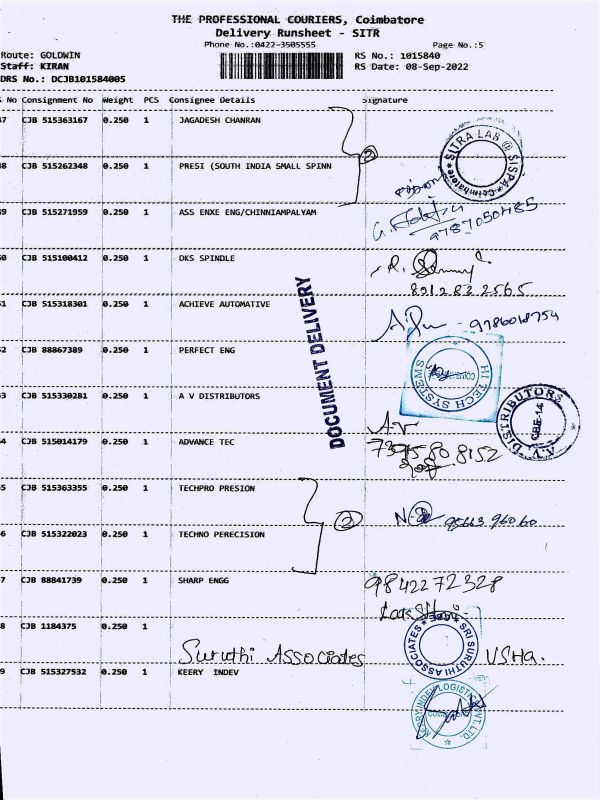 THE PROFESSIONAL COURIERS, Coimbatore
Delivery Runsheet - SITR
Phone No.:0422-3505555 Page No.:5
Route: GOLDWIN RS No.: 1015840
Staff: KIRAN RS Date: 08-Sep-2022
DRS No.: DCJB101584005
No Consignment No Weight PCS Consignee Details Signature
7 CJB 515363167 0.250 1 JAGADESH CHANRAN
SITRA LAB @ SISPA * Coimbatore *
2
8 CJB 515262348 0.250 1 PRESI (SOUTH INDIA SMALL SPINN
9 CJB 515271959 0.250 1 ASS ENXE ENG/CHINNIAMPALYAM
9787050485
0 CJB 515100412 0.250 1 DKS SPINDLE
8912832565
DOCUMENT DELIVERY
1 CJB 515318301 0.250 1 ACHIEVE AUTOMATIVE
9786018754
2 CJB 88867389 0.250 1 PERFECT ENG
HI TECH SYSTEMS
3 CJB 515330281 0.250 1 A V DISTRIBUTORS
A.V. DISTRIBUTORS
CBE-14
A.V
4 CJB 515014179 0.250 1 ADVANCE TEC
7395808152
5 CJB 515363355 0.250 1 TECHPRO PRESION
2
95663 96060
6 CJB 515322023 0.250 1 TECHNO PERECISION
7 CJB 88841739 0.250 1 SHARP ENGG
9842272328
8 CJB 1184375 0.250 1
Suruthi Associates
SRI SURUTHI ASSOCIATES
USHA.
9 CJB 515327532 0.250 1 KEERY INDEV